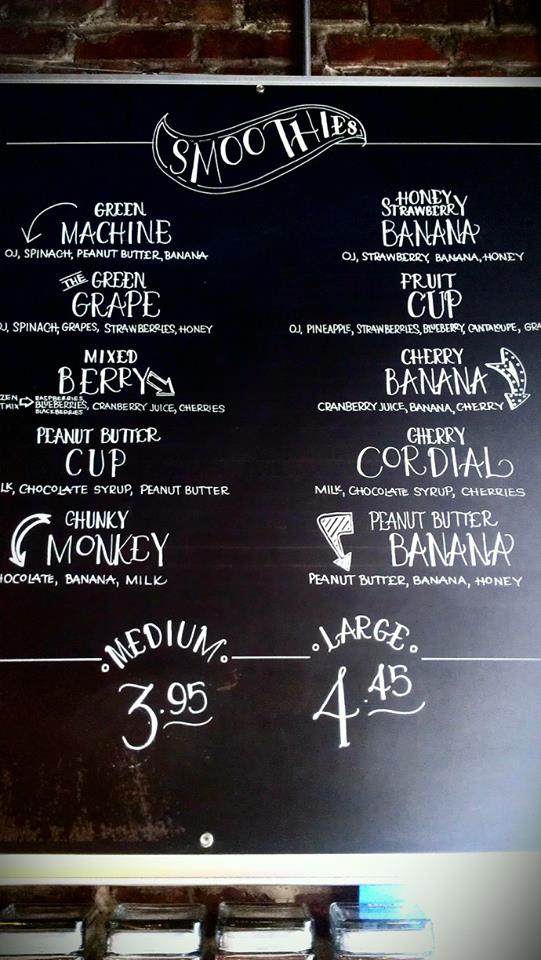 SMOOTHIES
GREEN
MACHINE
OJ, SPINACH, PEANUT BUTTER, BANANA
THE GREEN
GRAPE
SPINACH, GRAPES, STRAWBERRIES, HONEY
MIXED
BERRY
RASPBERRIES
BLUEBERRIES, CRANBERRY JUICE, CHERRIES
BLACKBERRIES
PEANUT BUTTER
CUP
CHOCOLATE SYRUP, PEANUT BUTTER
CHUNKY
MONKEY
BANANA, MILK
HONEY
STRAWBERRY
BANANA
OJ, STRAWBERRY, BANANA, HONEY
FRUIT
CUP
OJ, PINEAPPLE, STRAWBERRIES, BLUEBERRY, CANTALOUPE,
CHERRY
BANANA
CRANBERRY JUICE, BANANA, CHERRY
CHERRY
CORDIAL
MILK, CHOCOLATE SYRUP, CHERRIES
PEANUT BUTTER
BANANA
PEANUT BUTTER, BANANA, HONEY
MEDIUM
3.95
LARGE
4.45